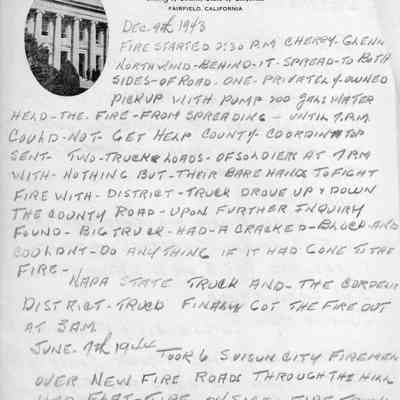 FAIRFIELD, CALIFORNIA
DEC. 9th 1943
FIRE STARTED 2:30 P.M CHERRY-GLENN
NORTHWIND-BEHIND-IT-SPREAD-TO BOTH
SIDES-OF ROAD. ONE-PRIVATELY OWNED
PICKUP WITH PUMP 200 GALS WATER
HELD-THE-FIRE-FROM SPREADING-UNTIL 7 P.M.
COULD-NOT-GET HELP COUNTY-COORDINATOR
SENT-TWO-TRUCK LOADS-OF SOLDIER AT 7 PM
WITH-NOTHING BUT-THEIR BARE HANDS TO FIGHT
FIRE WITH-DISTRICT-TRUCK DROVE UP & DOWN
THE COUNTY ROAD-UPON FURTHER INQUIRY
FOUND-BIG TRUCK-HAD-A CRACKED-BLOCK-AND
COULDN'T-DO ANYTHING IF IT HAD GONE TO THE
FIRE-
NAPA STATE TRUCK AND-THE CORDELIA
DISTRICT-TRUCK FINALLY GOT THE FIRE OUT
AT 3 AM.
JUNE. 7th 1944 TOOK 6 SUISUN CITY FIREMEN
OVER NEW FIRE ROADS THROUGH THE HILL
HAD FLAT-TIRE